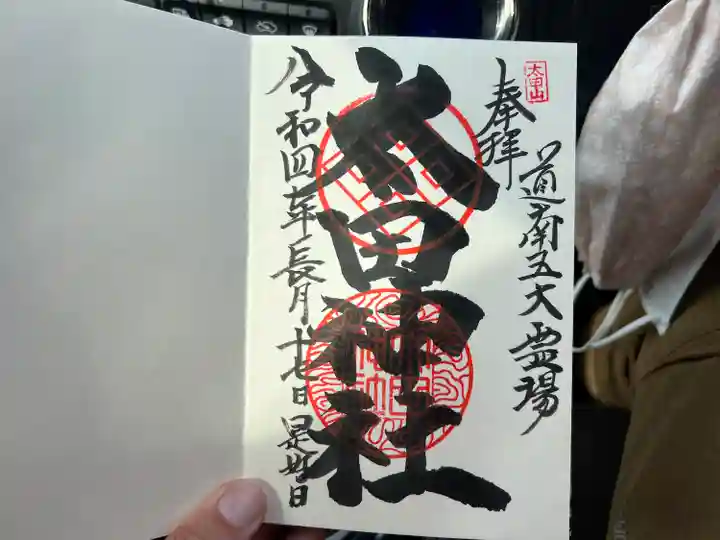 太田山
奉拝
道南五大霊場
太田神社
令和四年長月十七日
是好日